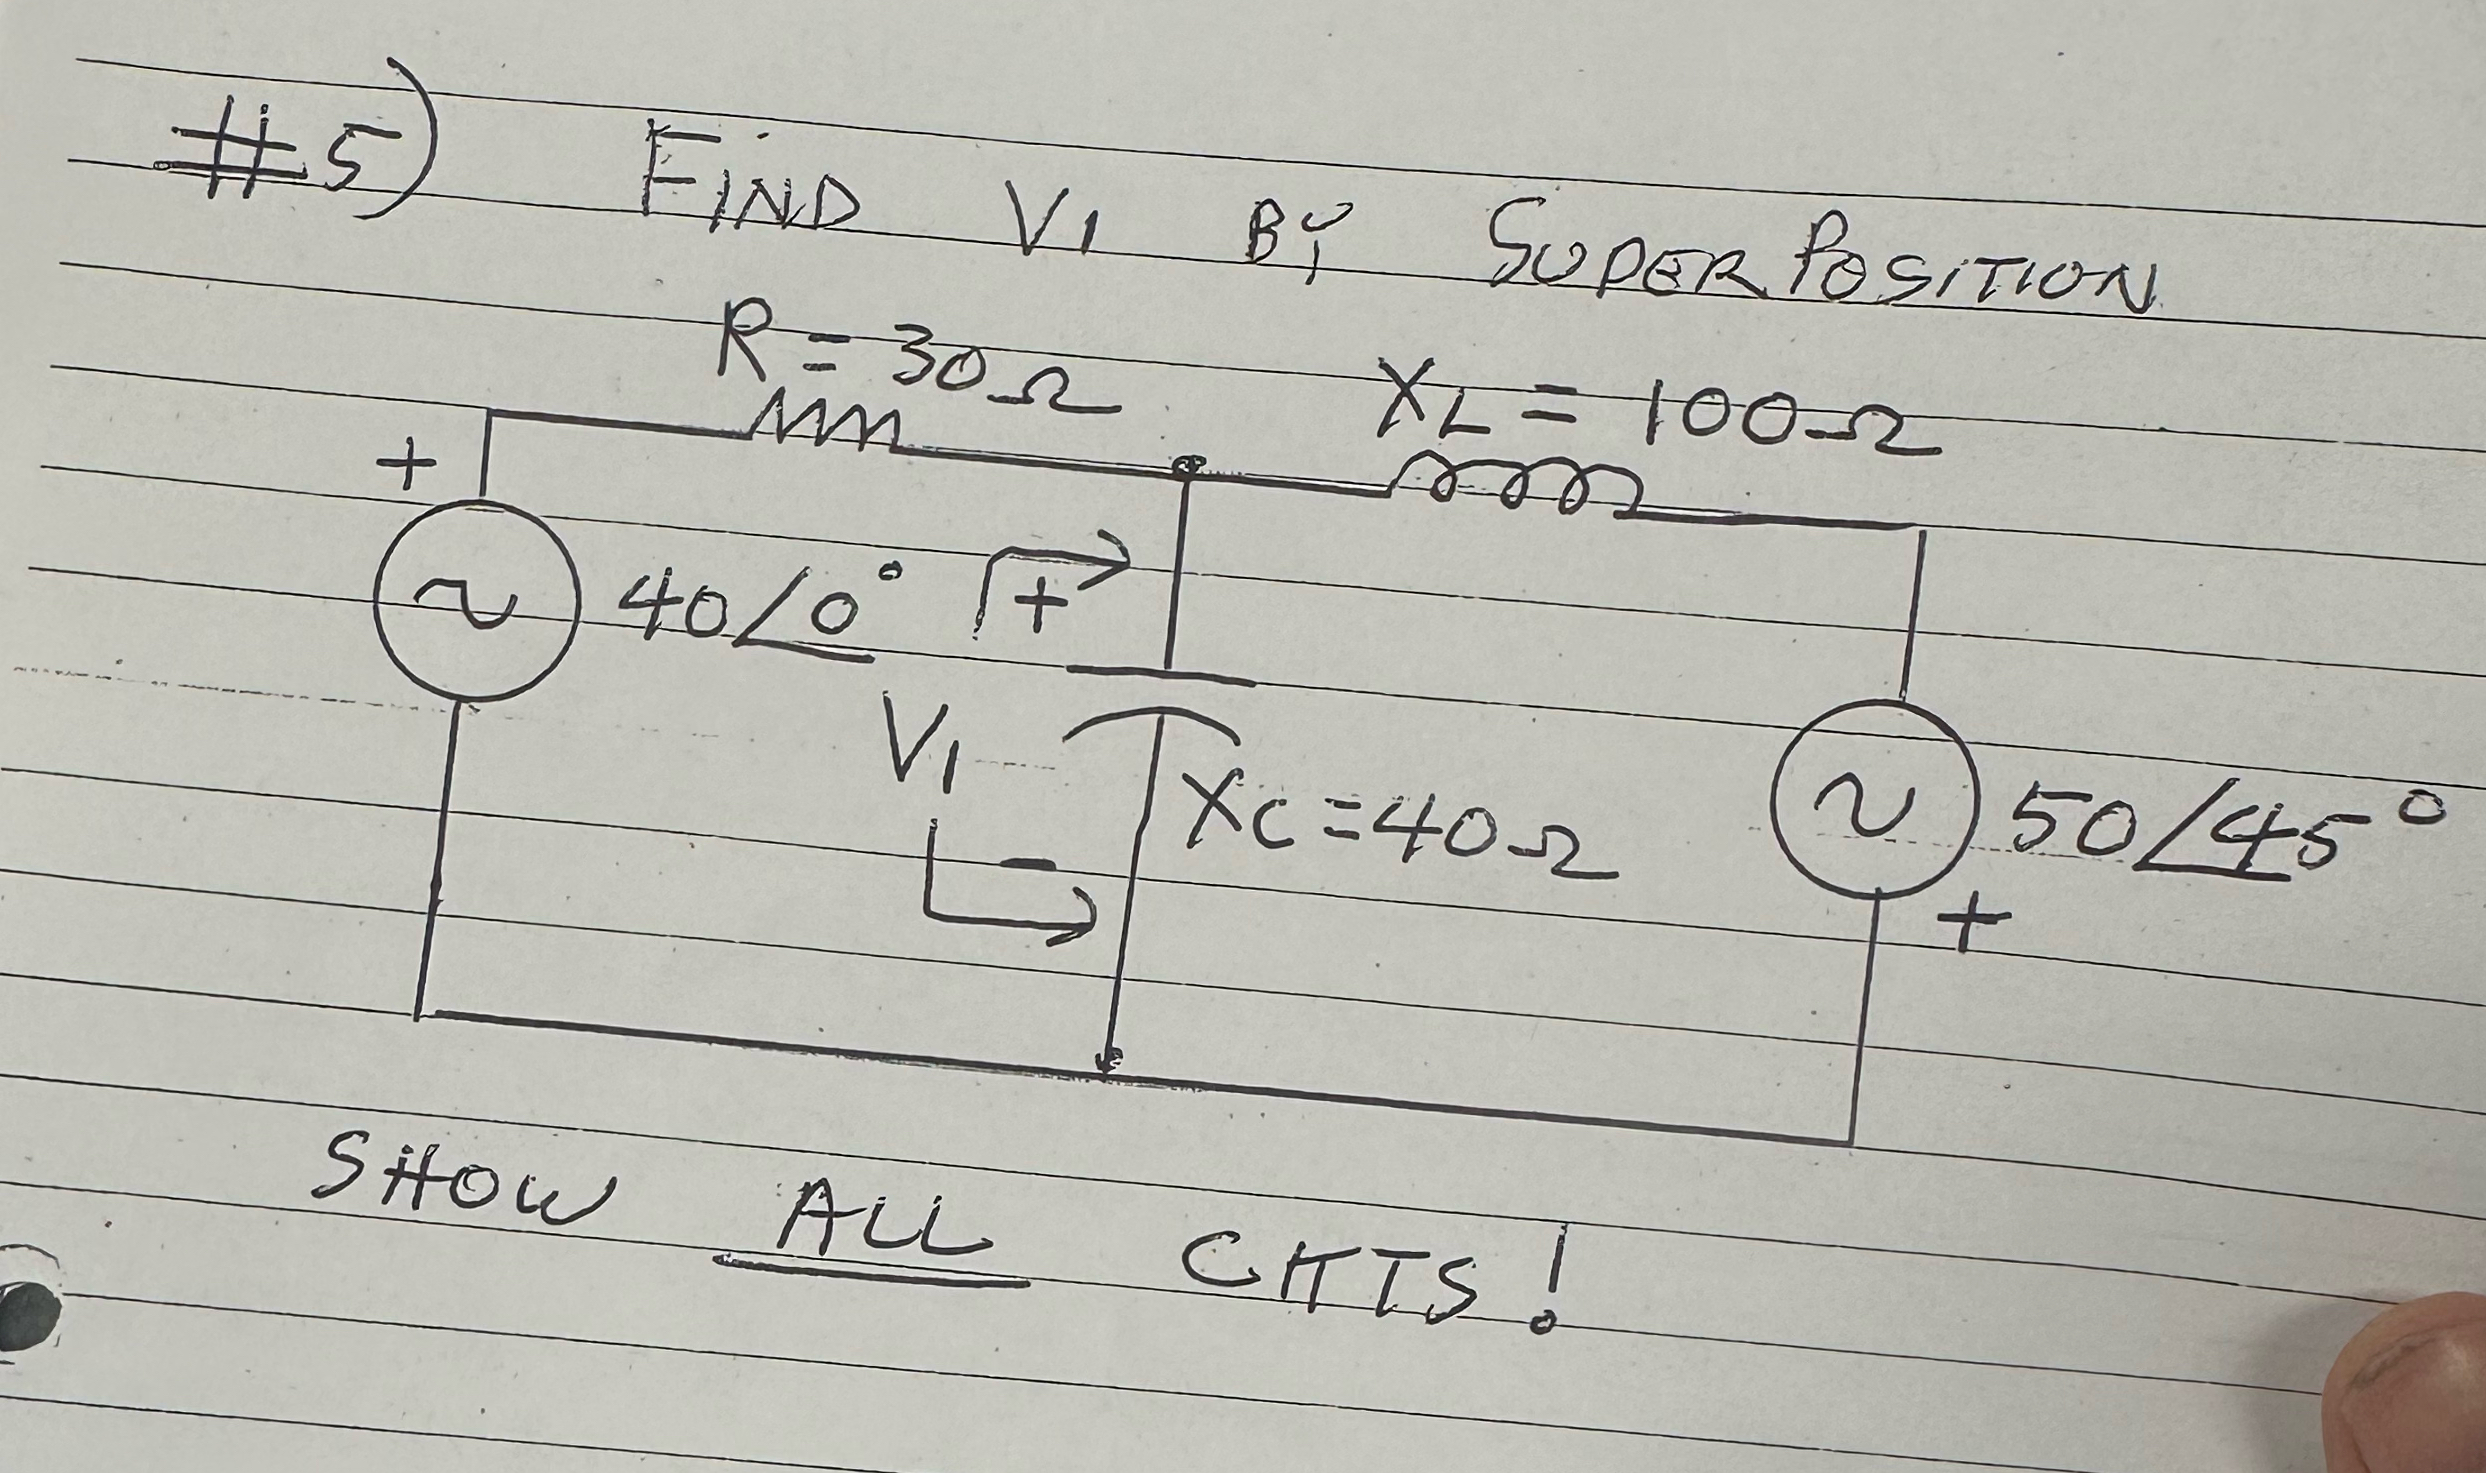 #5) FIND V1 BY SUPERPOSITION
R = 30Ω
XL = 100Ω
+
~ 40/0°
+
V1
XC = 40Ω
~ 50/45°
-
+
SHOW ALL CKTS!